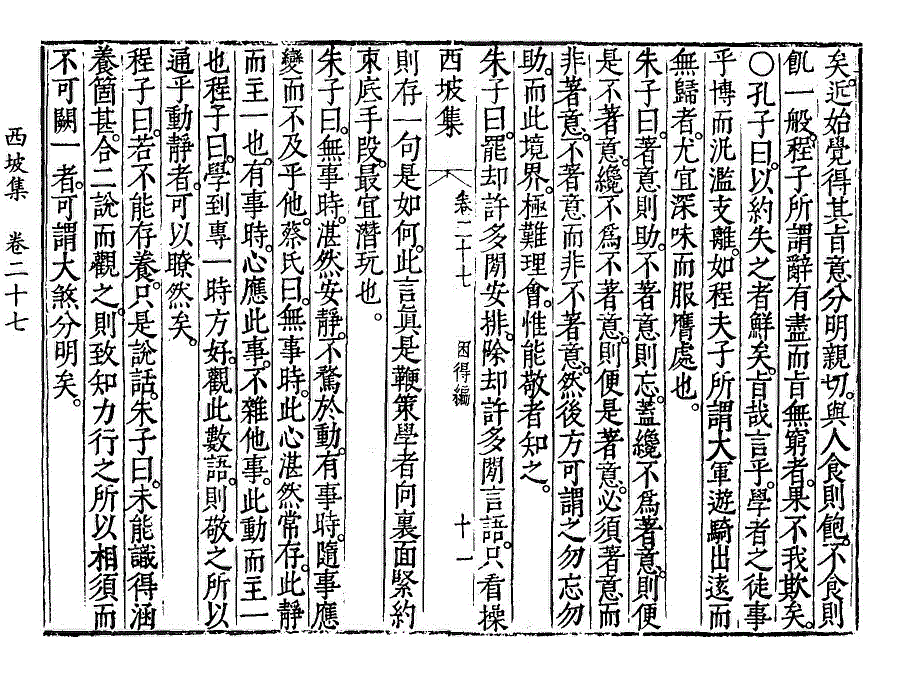 矣近始覺得其旨意分明親切與人食則飽不食則
飢一般程子所謂辭有盡而旨無窮者果不我欺矣
○孔子曰以約失之者鮮矣旨哉言乎學者之徒事
乎博而汎濫支離如程夫子所謂大軍遊騎出遠而
無歸者尤宜深味而服膺處也
朱子曰著意則助不著意則忘蓋纔不爲著意則便
是不著意纔不爲不著意則便是著意必須著意而
非著意不著意而非不著意然後方可謂之勿忘勿
助而此境界極難理會惟能敬者知之
朱子曰罷却許多閒安排除却許多閒言語只看操
西坡集 卷二十七 困得編 十一
則存一句是如何此言眞是鞭策學者向裏面緊約
束底手段最宜潛玩也
朱子曰無事時湛然安靜不騖於動有事時隨事應
變而不及乎他蔡氏曰無事時此心湛然常存此靜
而主一也有事時心應此事不雜他事此動而主一
也程子曰學到專一時方好觀此數語則敬之所以
通乎動靜者可以瞭然矣
程子曰若不能存養只是說話朱子曰未能識得涵
養箇甚合二說而觀之則致知力行之所以相須而
不可闕一者可謂大煞分明矣
西坡集 卷二十七